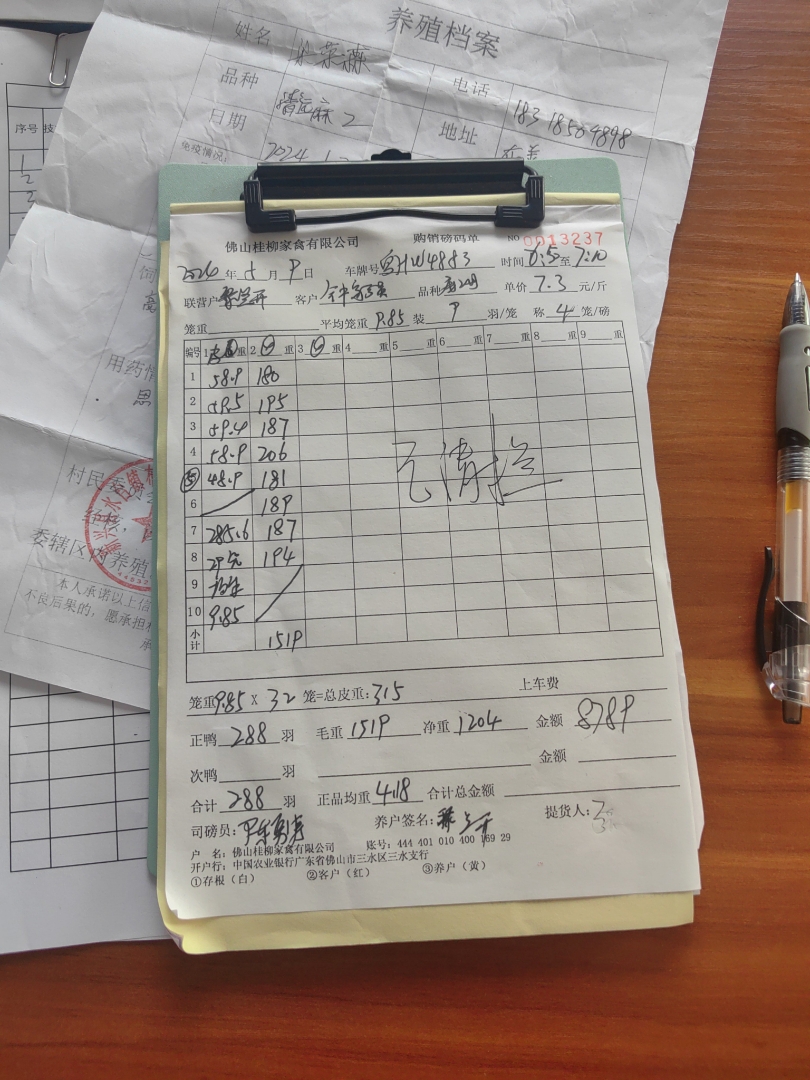 养殖档案
姓名
品种
电话
18318564898
日期
地址
2024
免疫情况:
序号
用药情
村民委
经核,
委辖区内养殖
本人承诺以上信
不良后果的,愿承担
承
佛山桂柳家禽有限公司 购销磅码单 NO 0013237
年 5 月 9 日 车牌号 W4883 时间 6:5 至 7:10
联营户 客户 品种 单价 7.3 元/斤
笼重 平均笼重 9.85 装 9 羽/笼 称 4 笼/磅
编号 1 皮 重 2 重 3 重 4 重 5 重 6 重 7 重 8 重 9 重
1 58.9 180
2 59.5 195
3 59.4 187
4 58.9 206
5 48.9 181
6 189
7 285.6 187
8 29 194
9
10 9.85
小计 1519
已清栏
笼重 9.85 X 32 笼=总皮重: 315 上车费
正鸭 288 羽 毛重 1519 净重 1204 金额 8789
次鸭 羽 金额
合计 288 羽 正品均重 4.18 合计总金额
司磅员: 养户签名: 提货人:
户 名: 佛山桂柳家禽有限公司 账号: 444 401 010 400 169 29
开户行: 中国农业银行广东省佛山市三水区三水支行
①存根(白) ②客户(红) ③养户(黄)